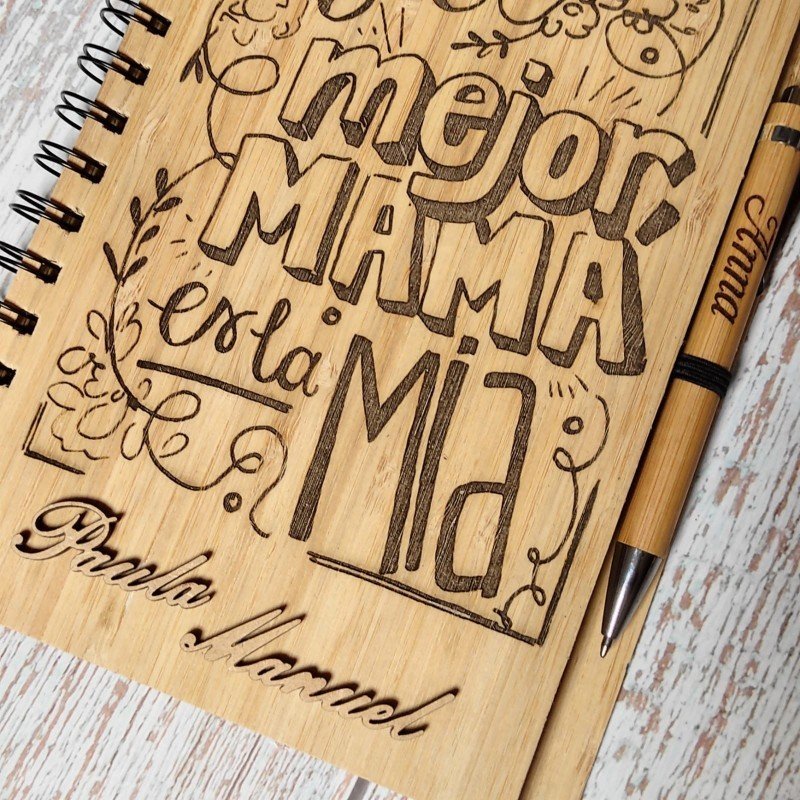 mejor,
MAMÁ
es la
Mía
Paula
Manuel
Anna